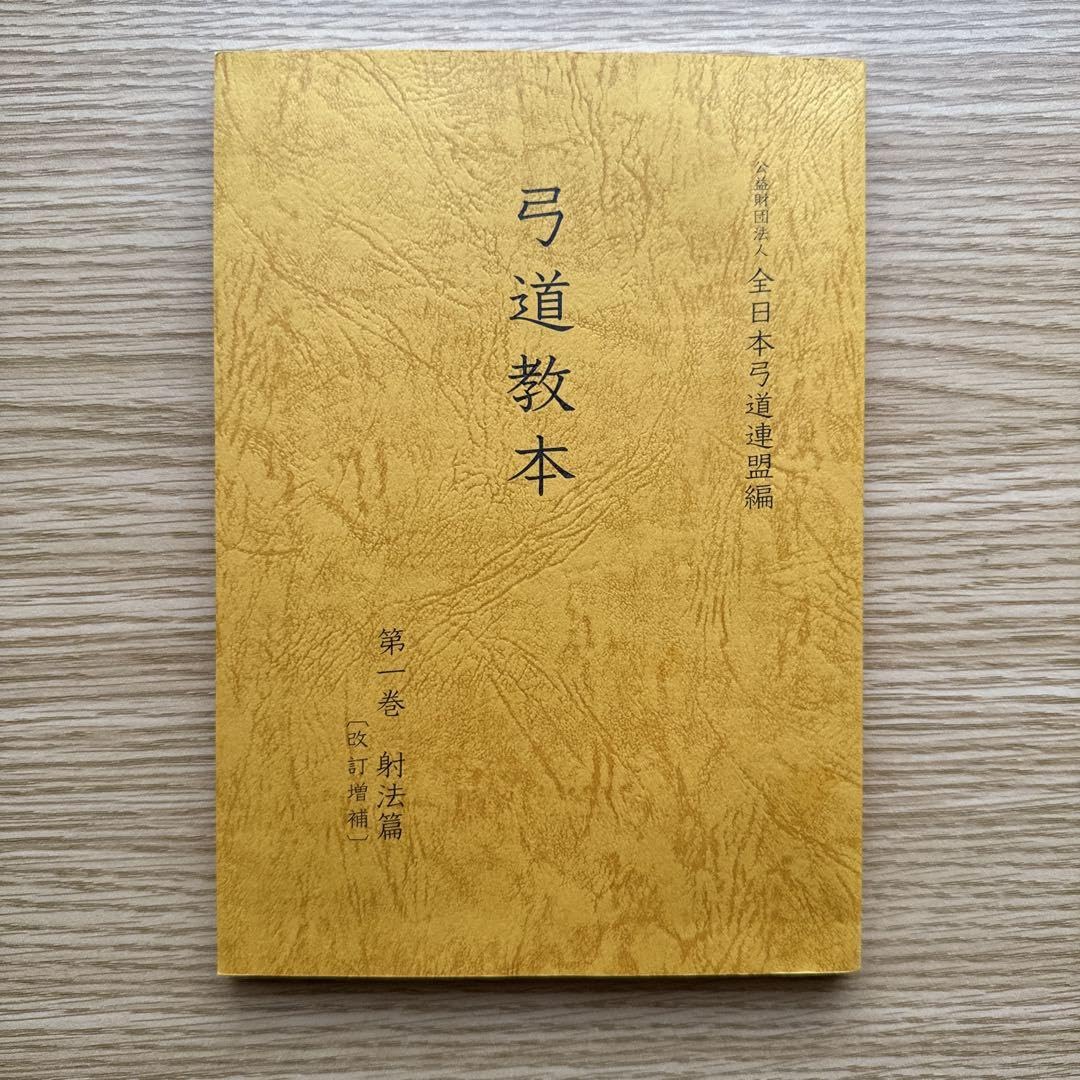 公益財団法人 全日本弓道連盟編
弓道教本
第一巻 射法篇
〔改訂増補〕